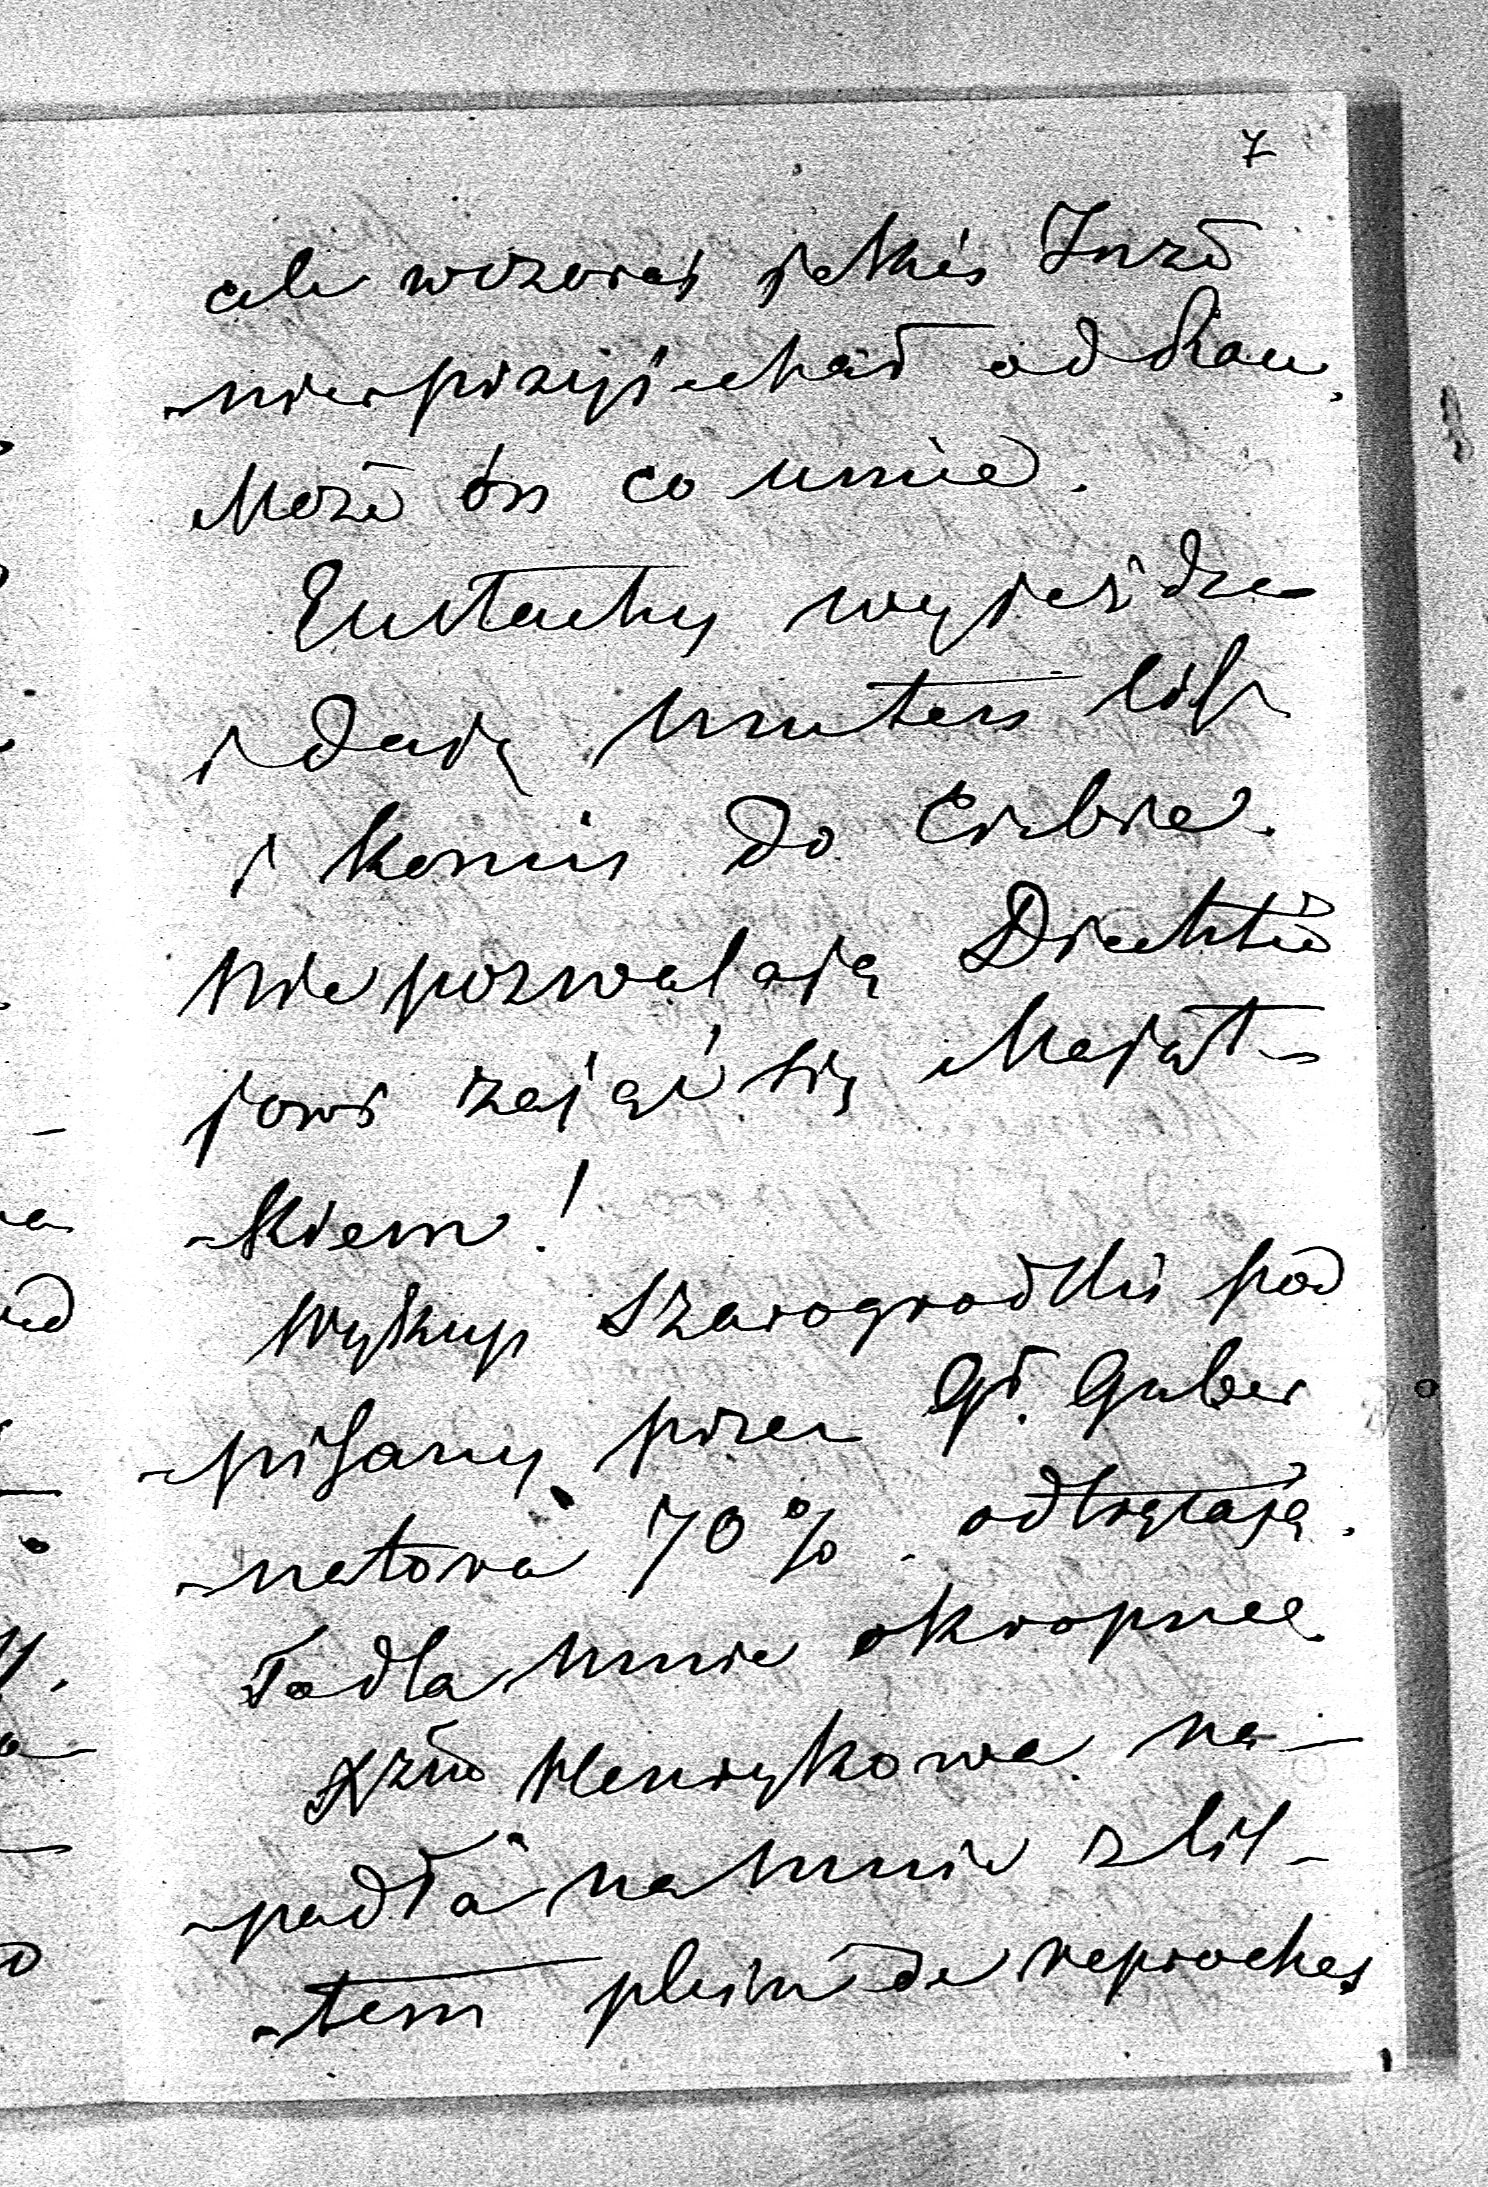 7
ale wczoraj jakiś Inżź
-nier przyjechał od Rau.
Może ón co umie.
Eustachy wyjeżdza
i dają mu ten list
i komis do Ciebie.
Nie pozwalają Direkti
jowi zająć się Mająt-
-kiem!
Wykup Szarogrodzki pod
-pisany przez Gł. Guber
-natora 70% odtrącają.
To dla mnie okropne
Xżna Henrykowa na-
-padła na mnie z lis-
-tem plein de reproches